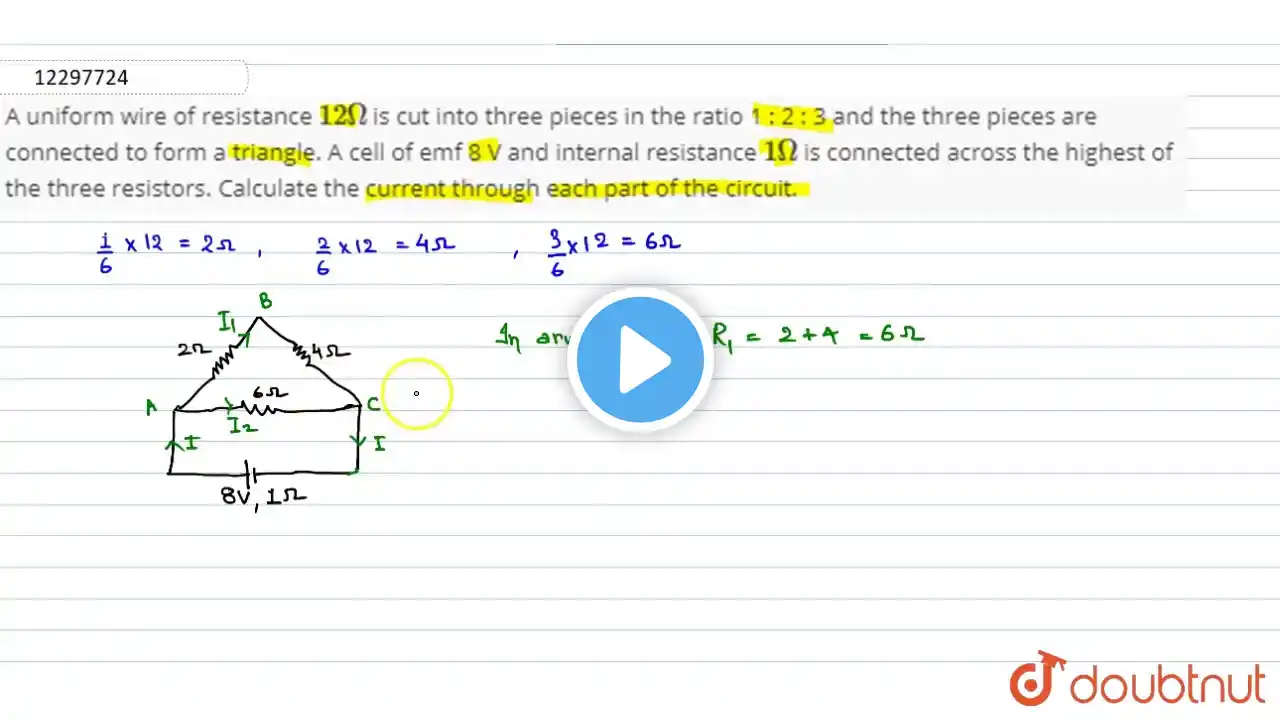 12297724
A uniform wire of resistance 12Ω is cut into three pieces in the ratio 1 : 2 : 3 and the three pieces are
connected to form a triangle. A cell of emf 8 V and internal resistance 1Ω is connected across the highest of
the three resistors. Calculate the current through each part of the circuit.
1/6 × 12 = 2Ω , 2/6 × 12 = 4Ω , 3/6 × 12 = 6Ω
B
I₁
2Ω 4Ω
In R₁ = 2 + 4 = 6Ω
6Ω
A C
I₂
I I
8V, 1Ω
doubtnut